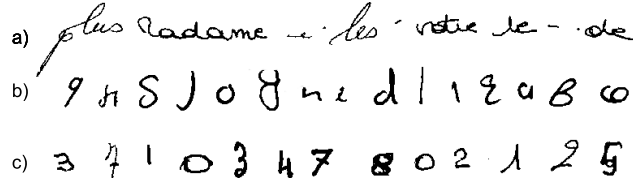 a) plus Madame les votre le de
b) 9 n S J o y n e d l 1 q a B
c) 3 7 1 0 3 4 7 8 0 2 1 2 5